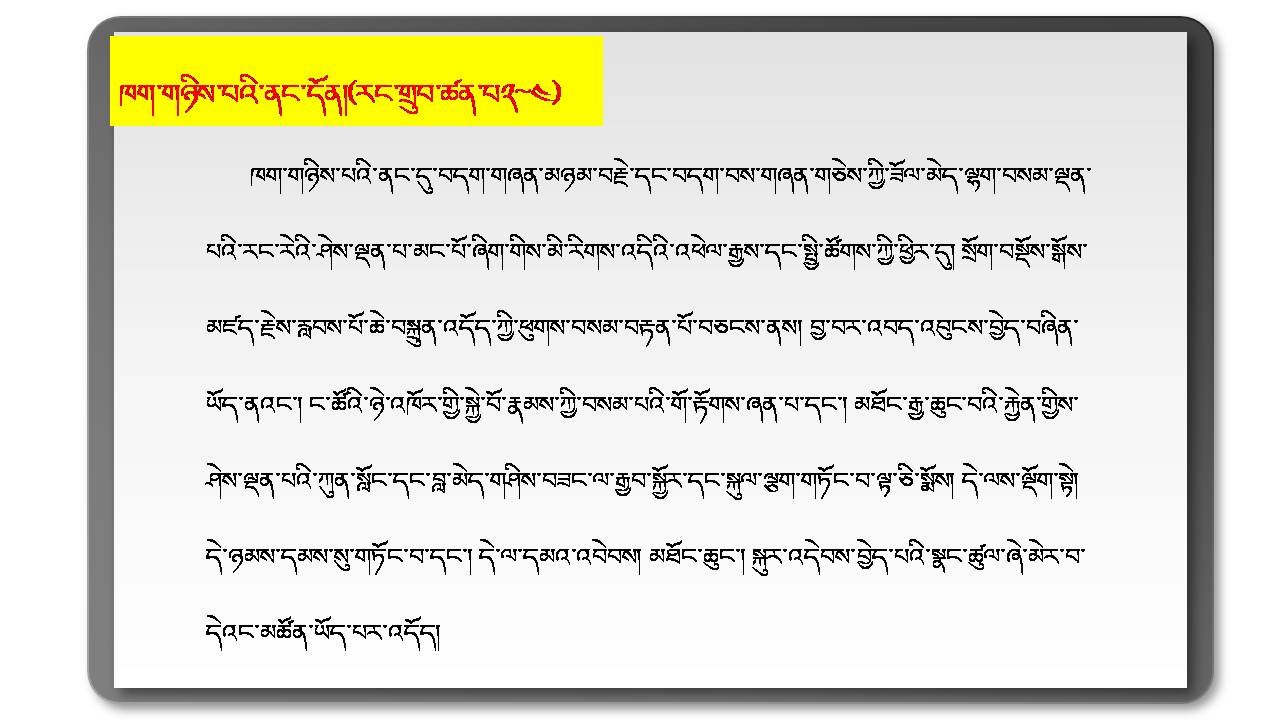 ཁག་གཉིས་པའི་ནང་དོན།(རང་གྲུབ་ཚན་པ༢~༤)
ཁག་གཉིས་པའི་ནང་དུ་བདག་གཞན་མཉམ་བརྗེ་དང་བདག་བས་གཞན་གཅེས་ཀྱི་ཟོལ་མེད་ལྷག་བསམ་ལྡན་
པའི་རང་རེའི་ཤེས་ལྡན་པ་མང་པོ་ཞིག་གིས་མི་རིགས་འདིའི་འཕེལ་རྒྱས་དང་སྤྱི་ཚོགས་ཀྱི་ཕྱིར་དུ། སྲོག་བསྡོས་སྒོས་
མཛད་རྗེས་རླབས་པོ་ཆེ་བསྐྲུན་འདོད་ཀྱི་ཕུགས་བསམ་བརྟན་པོ་བཅངས་ནས། བྱ་བར་འབད་འབུངས་བྱེད་བཞིན་
ཡོད་ནའང་། ང་ཚོའི་ཉེ་འཁོར་གྱི་སྐྱེ་བོ་རྣམས་ཀྱི་བསམ་པའི་གོ་རྟོགས་ཞན་པ་དང་། མཐོང་རྒྱ་ཆུང་བའི་རྐྱེན་གྱིས་
ཤེས་ལྡན་པའི་ཀུན་སློང་དང་བླ་མེད་གཤིས་བཟང་ལ་རྒྱབ་སྐྱོར་དང་སྐུལ་ལྕག་གཏོང་བ་ལྟ་ཅི་སྨོས། དེ་ལས་ལྡོག་སྟེ།
དེ་ཉམས་དམས་སུ་གཏོང་བ་དང་། དེ་ལ་དམའ་འབེབས། མཐོང་ཆུང་། སྐུར་འདེབས་བྱེད་པའི་སྣང་ཚུལ་ཞེ་མེར་བ་
དེའང་མཚོན་ཡོད་པར་འདོད།